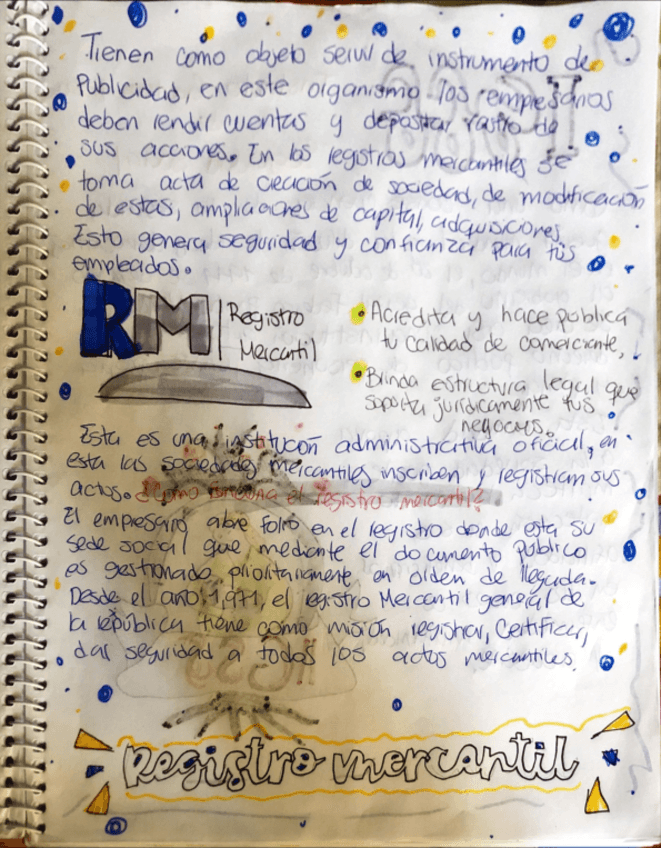 Tienen como objeto servir de instrumento de
Publicidad, en este organismo los empresarios
deben rendir cuentas y depositar rastro de
sus acciones. En los registros mercantiles se
toma acta de creación de sociedad, de modificación
de estas, ampliaciones de capital, adquisiciones.
Esto genera seguridad y confianza para tus
empleados.
RM Registro
Mercantil
Acredita y hace publica
tu calidad de comerciante,
Brinda estructura legal que
soporta jurídicamente tus
negocios.
Esta es una institución administrativa oficial, en
esta las sociedades mercantiles inscriben y registran sus
actos. ¿Como funciona el registro mercantil?
El empresario abre folio en el registro donde esta su
sede social que mediante el documento publico
es gestionado prioritariamente en orden de llegada.
Desde el año 1,971, el registro Mercantil general de
la república tiene como misión registrar, Certificar,
dar seguridad a todos los actos mercantiles.
Registro mercantil